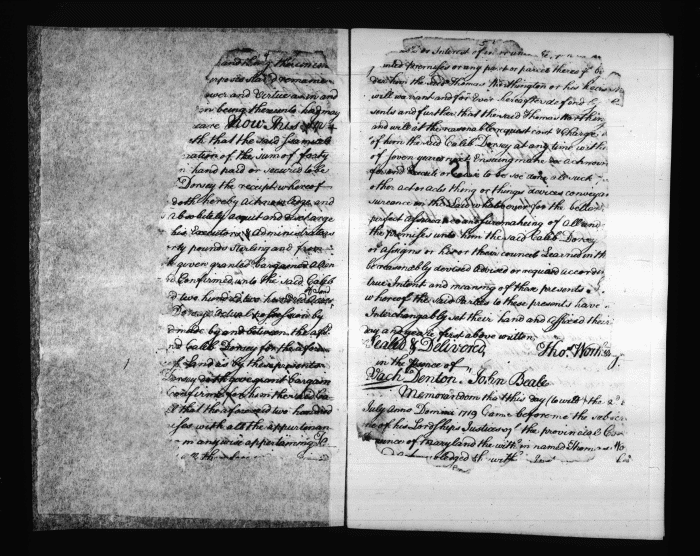 and being thereunto
power and Virtue as in and
in being thereunto had may
Now This
th that the said
ration of the sum of forty
in hand paid or secured to be
Dorsey the receipt whereof
doth hereby acknowledge and
absolutely acquit and discharge
his Executors & Administrators
rty pounds Sterling and
th given granted bargained
Confirmed unto the said Caleb
land
d two hundred
Dorseys actual possession by
d made by and between the
nd Caleb Dorsey
of Land as by these presents
Dorsey doth give grant bargain
confirm
d that the aforesaid two hundred
with all the appurtenan
in any wise appertaining
or Interest of in or unto
nted premises or any part or parcel thereof by
him the said Thomas Worthington or his heirs
will warrant and for Ever hereafter defend by
sents and further that the said Thomas Worthin
and will at the reasonable request cost & Charge
of him the said Caleb Dorsey at any time with
of Seven years next Ensuing make do acknow
and Execute or Cause to be so done all such
other act or acts thing or things devices conveyan
surance on the Law whatsoever for the better
perfect Assurance and sure making of all and
the premises unto him the said Caleb Dorsey
or assigns or his or their council Learned in th
be reasonably devised advised or required accordin
true Intent and meaning of these presents
whereof the said Parties to these presents have
Interchangeably set their hand and affixed their
day and year first above written
Sealed & Delivered Tho.s
in the presence of
Vach Denton" John Beale
Memorandum that this day (to wit) the
July anno Domini 1719 Came before me the
of his Lordships Justices of the provincial
of Maryland the within named Thomas